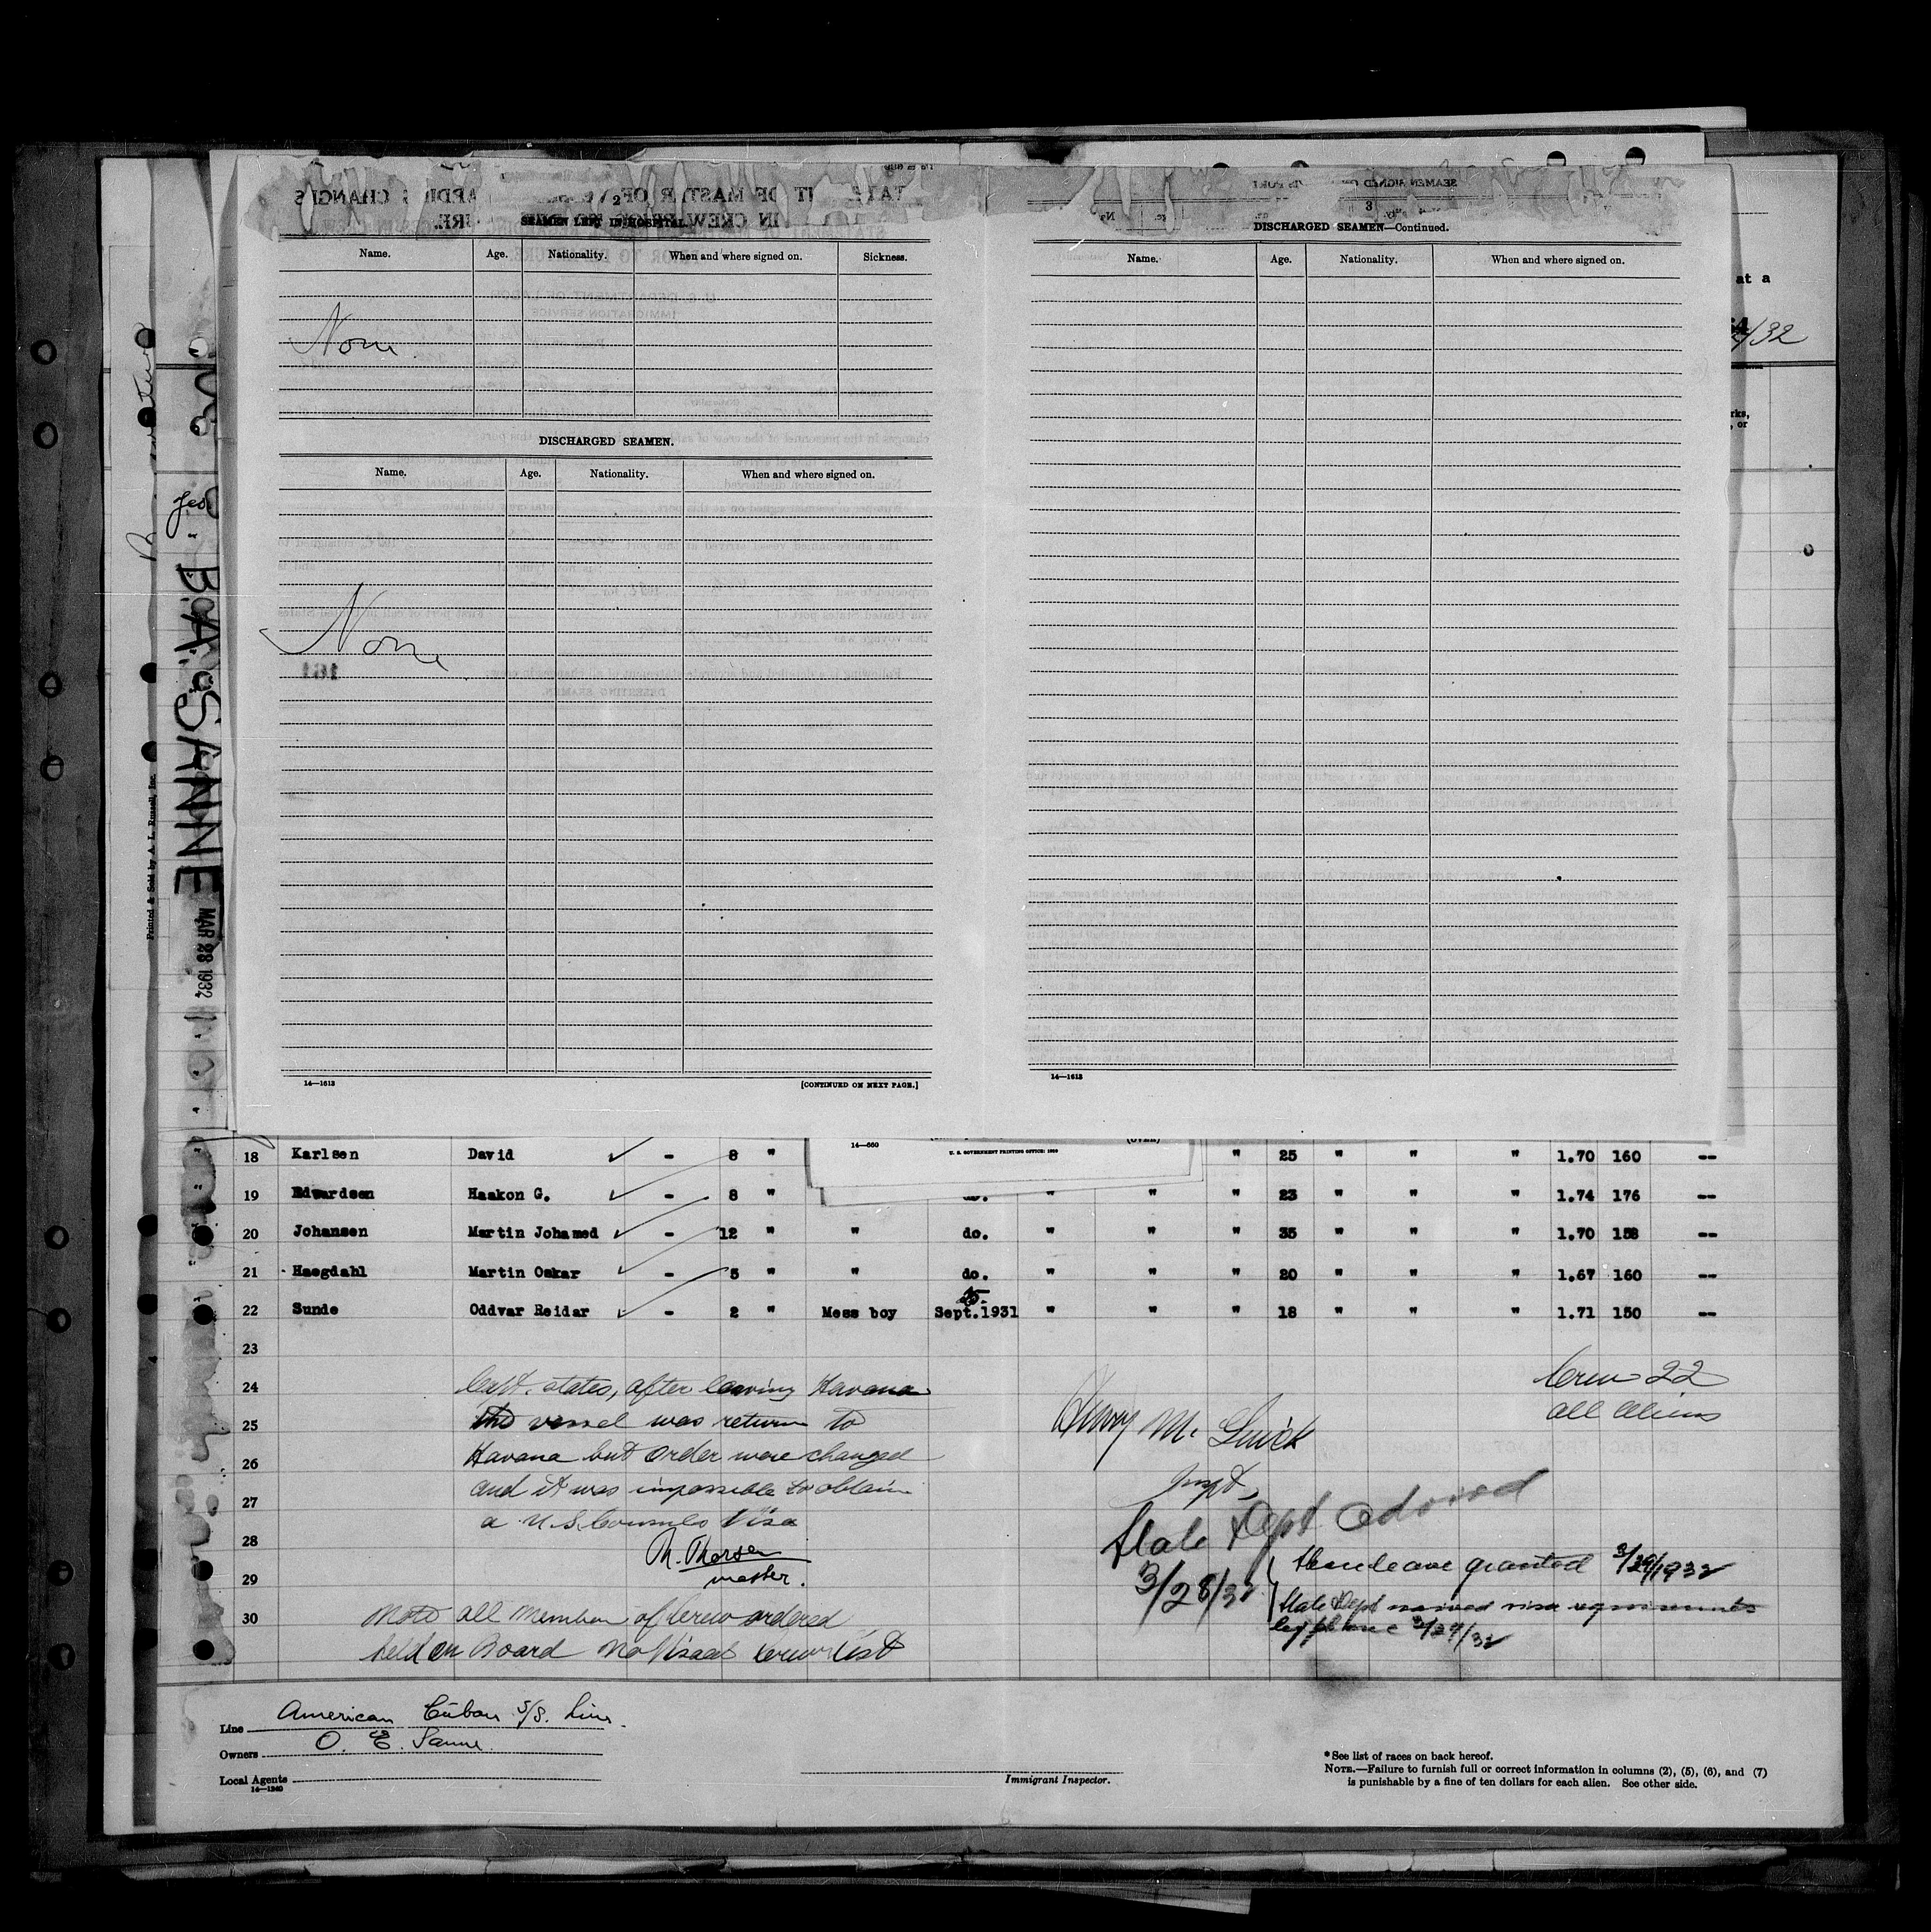 2
SEAMEN LEFT IN HOSPITAL.
Name. Age. Nationality. When and where signed on. Sickness.
None
DISCHARGED SEAMEN.
Name. Age. Nationality. When and where signed on.
None
161
14—1613 [CONTINUED ON NEXT PAGE.]
SEAMEN SIGNED
3
DISCHARGED SEAMEN—Continued.
Name. Age. Nationality. When and where signed on.
14—1613
at a
/32
rks,
, or
Printed & Sold by A. L. Russell, Inc.
SANNE
MAR 28 1932
14—660
U. S. GOVERNMENT PRINTING OFFICE: 1930
(OVER)
18 Karlsen David ✓ - 8 " " 25 " " " 1.70 160 --
19 Edvardsen Haakon G. ✓ - 8 " do. " " " 23 " " " 1.74 176 --
20 Johansen Martin Johamed ✓ - 12 " " do. " " " 35 " " " 1.70 158 --
21 Haegdahl Martin Oskar ✓ - 5 " " do. " " " 20 " " " 1.67 160 --
22 Sunde Oddvar Reidar ✓ - 2 " Mess boy Sept.1931 " " " 18 " " " 1.71 150 --
23
24 Capt. states, after leaving Havana
25 the vessel was return to
26 Havana but order were changed
27 and it was impossible to obtain
28 a U.S. Consuls Visa
29 M. Thorsen
master.
30 Note all member of Crew ordered
held on Board No Visaed crew list
Crew 22
all Aliens
Henry M. Quick
Inspt,
State Dept advised
3/28/32
Shoreleave granted 3/29/1932
State Dept waived visa requirements
by phone 3/29/32
Line American Cuban S/S. Line.
Owners O. E. Sanne.
Local Agents
14—1240
Immigrant Inspector.
*See list of races on back hereof.
NOTE.—Failure to furnish full or correct information in columns (2), (5), (6), and (7)
is punishable by a fine of ten dollars for each alien. See other side.